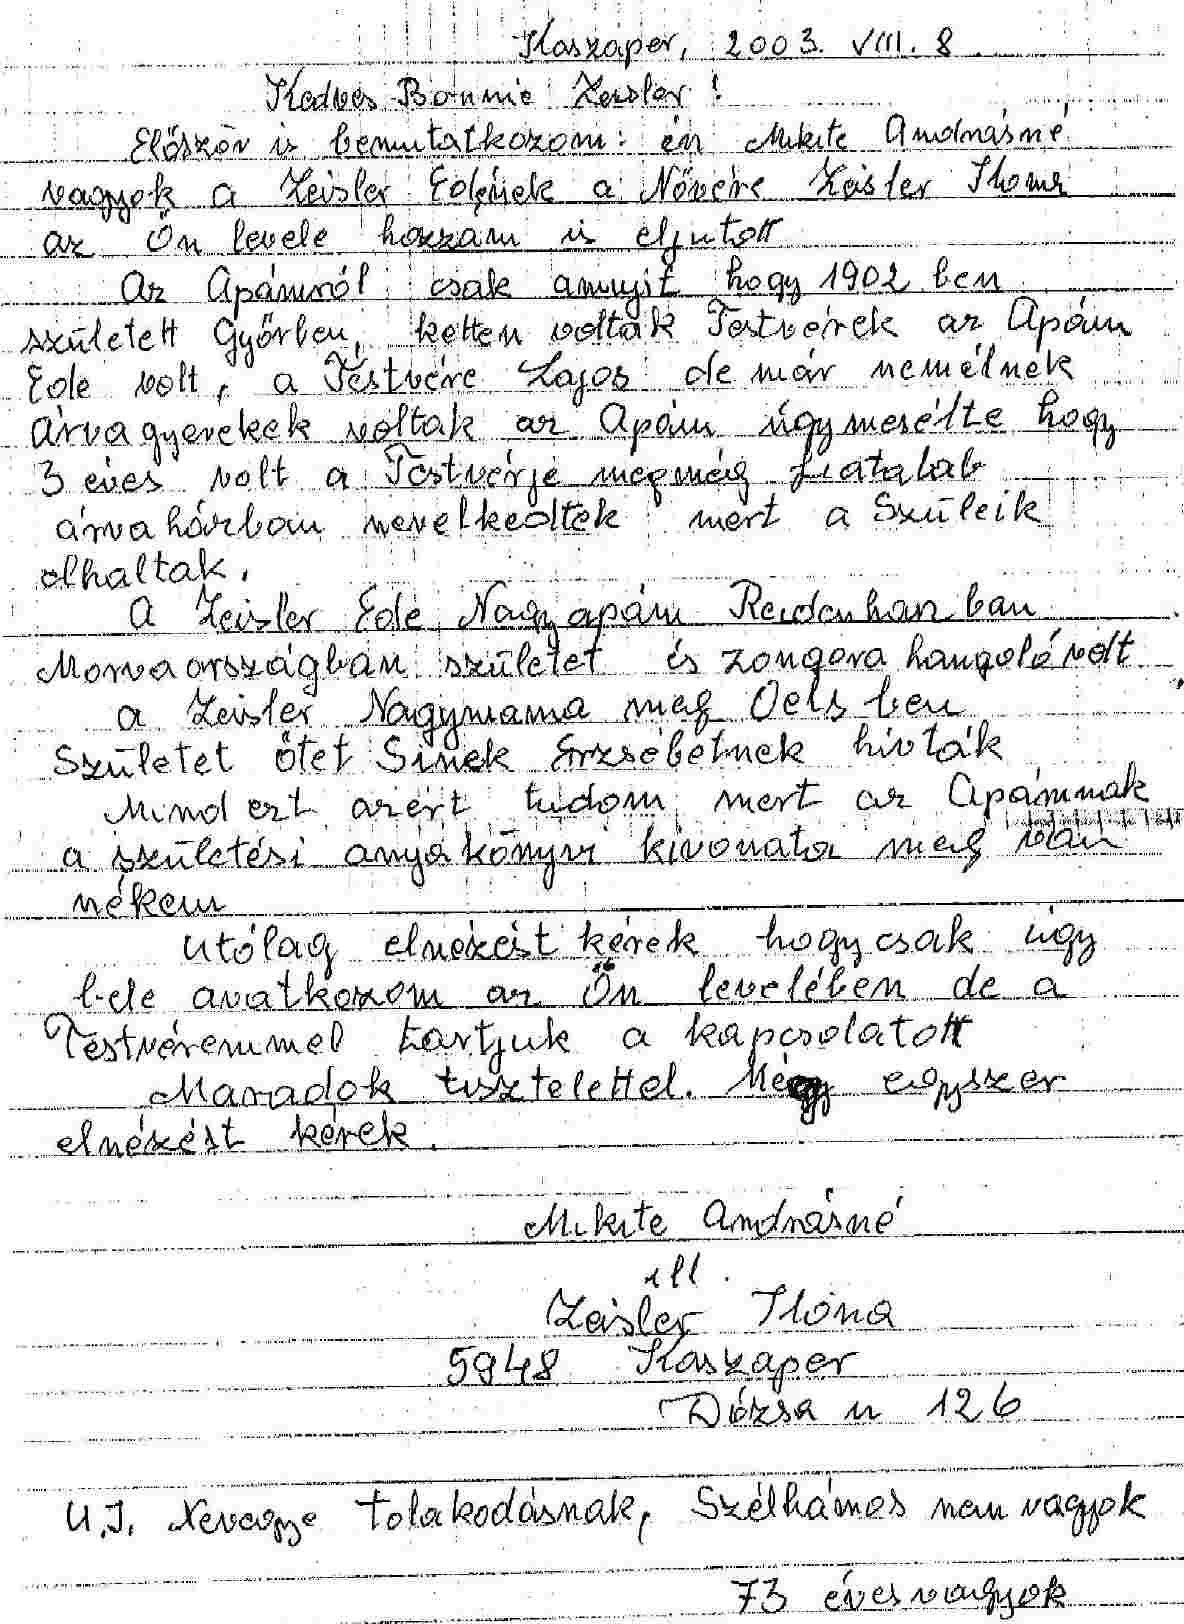 Kaszaper, 2003. VIII. 8
Kedves Bonnie Zeisler!
Először is bemutatkozom: én Mikite Andrásné
vagyok a Zeisler Edének a Nővére Zeisler Ilona
az Ön levele hozzám is eljutott
Az Apámról csak annyit hogy 1902 ben
született Győrben, ketten voltak Testvérek az Apám
Ede volt, a Testvére Lajos de már nemélnek
árva gyerekek voltak az Apám úgy mesélte hogy
3 éves volt a Testvérje megmég fiatalab
árva házban nevelkedtek mert a Szüleik
elhaltak.
A Zeisler Ede Nagyapám ban
Morvaországban születet és zongora hangoló volt
a Zeisler Nagymama meg Oels ben
Születet őtet Sinek Erzsébetnek hívták
Mind ezt azért tudom mert az Apámnak
a születési anyakönyvi kivonata meg van
nékem
Utólag elnézést kérek hogy csak úgy
bele avatkozom az Ön levelében de a
Testvéremmel tartjuk a kapcsolatott
Maradok tisztelettel. Mégy egyszer
elnézést kérek.
Mikite Andrásné
ill.
Zeisler Ilona
5948 Kaszaper
Dózsa u 126
U.I. Nevegye tolakodásnak, Szélhámos nem vagyok
73 éves vagyok